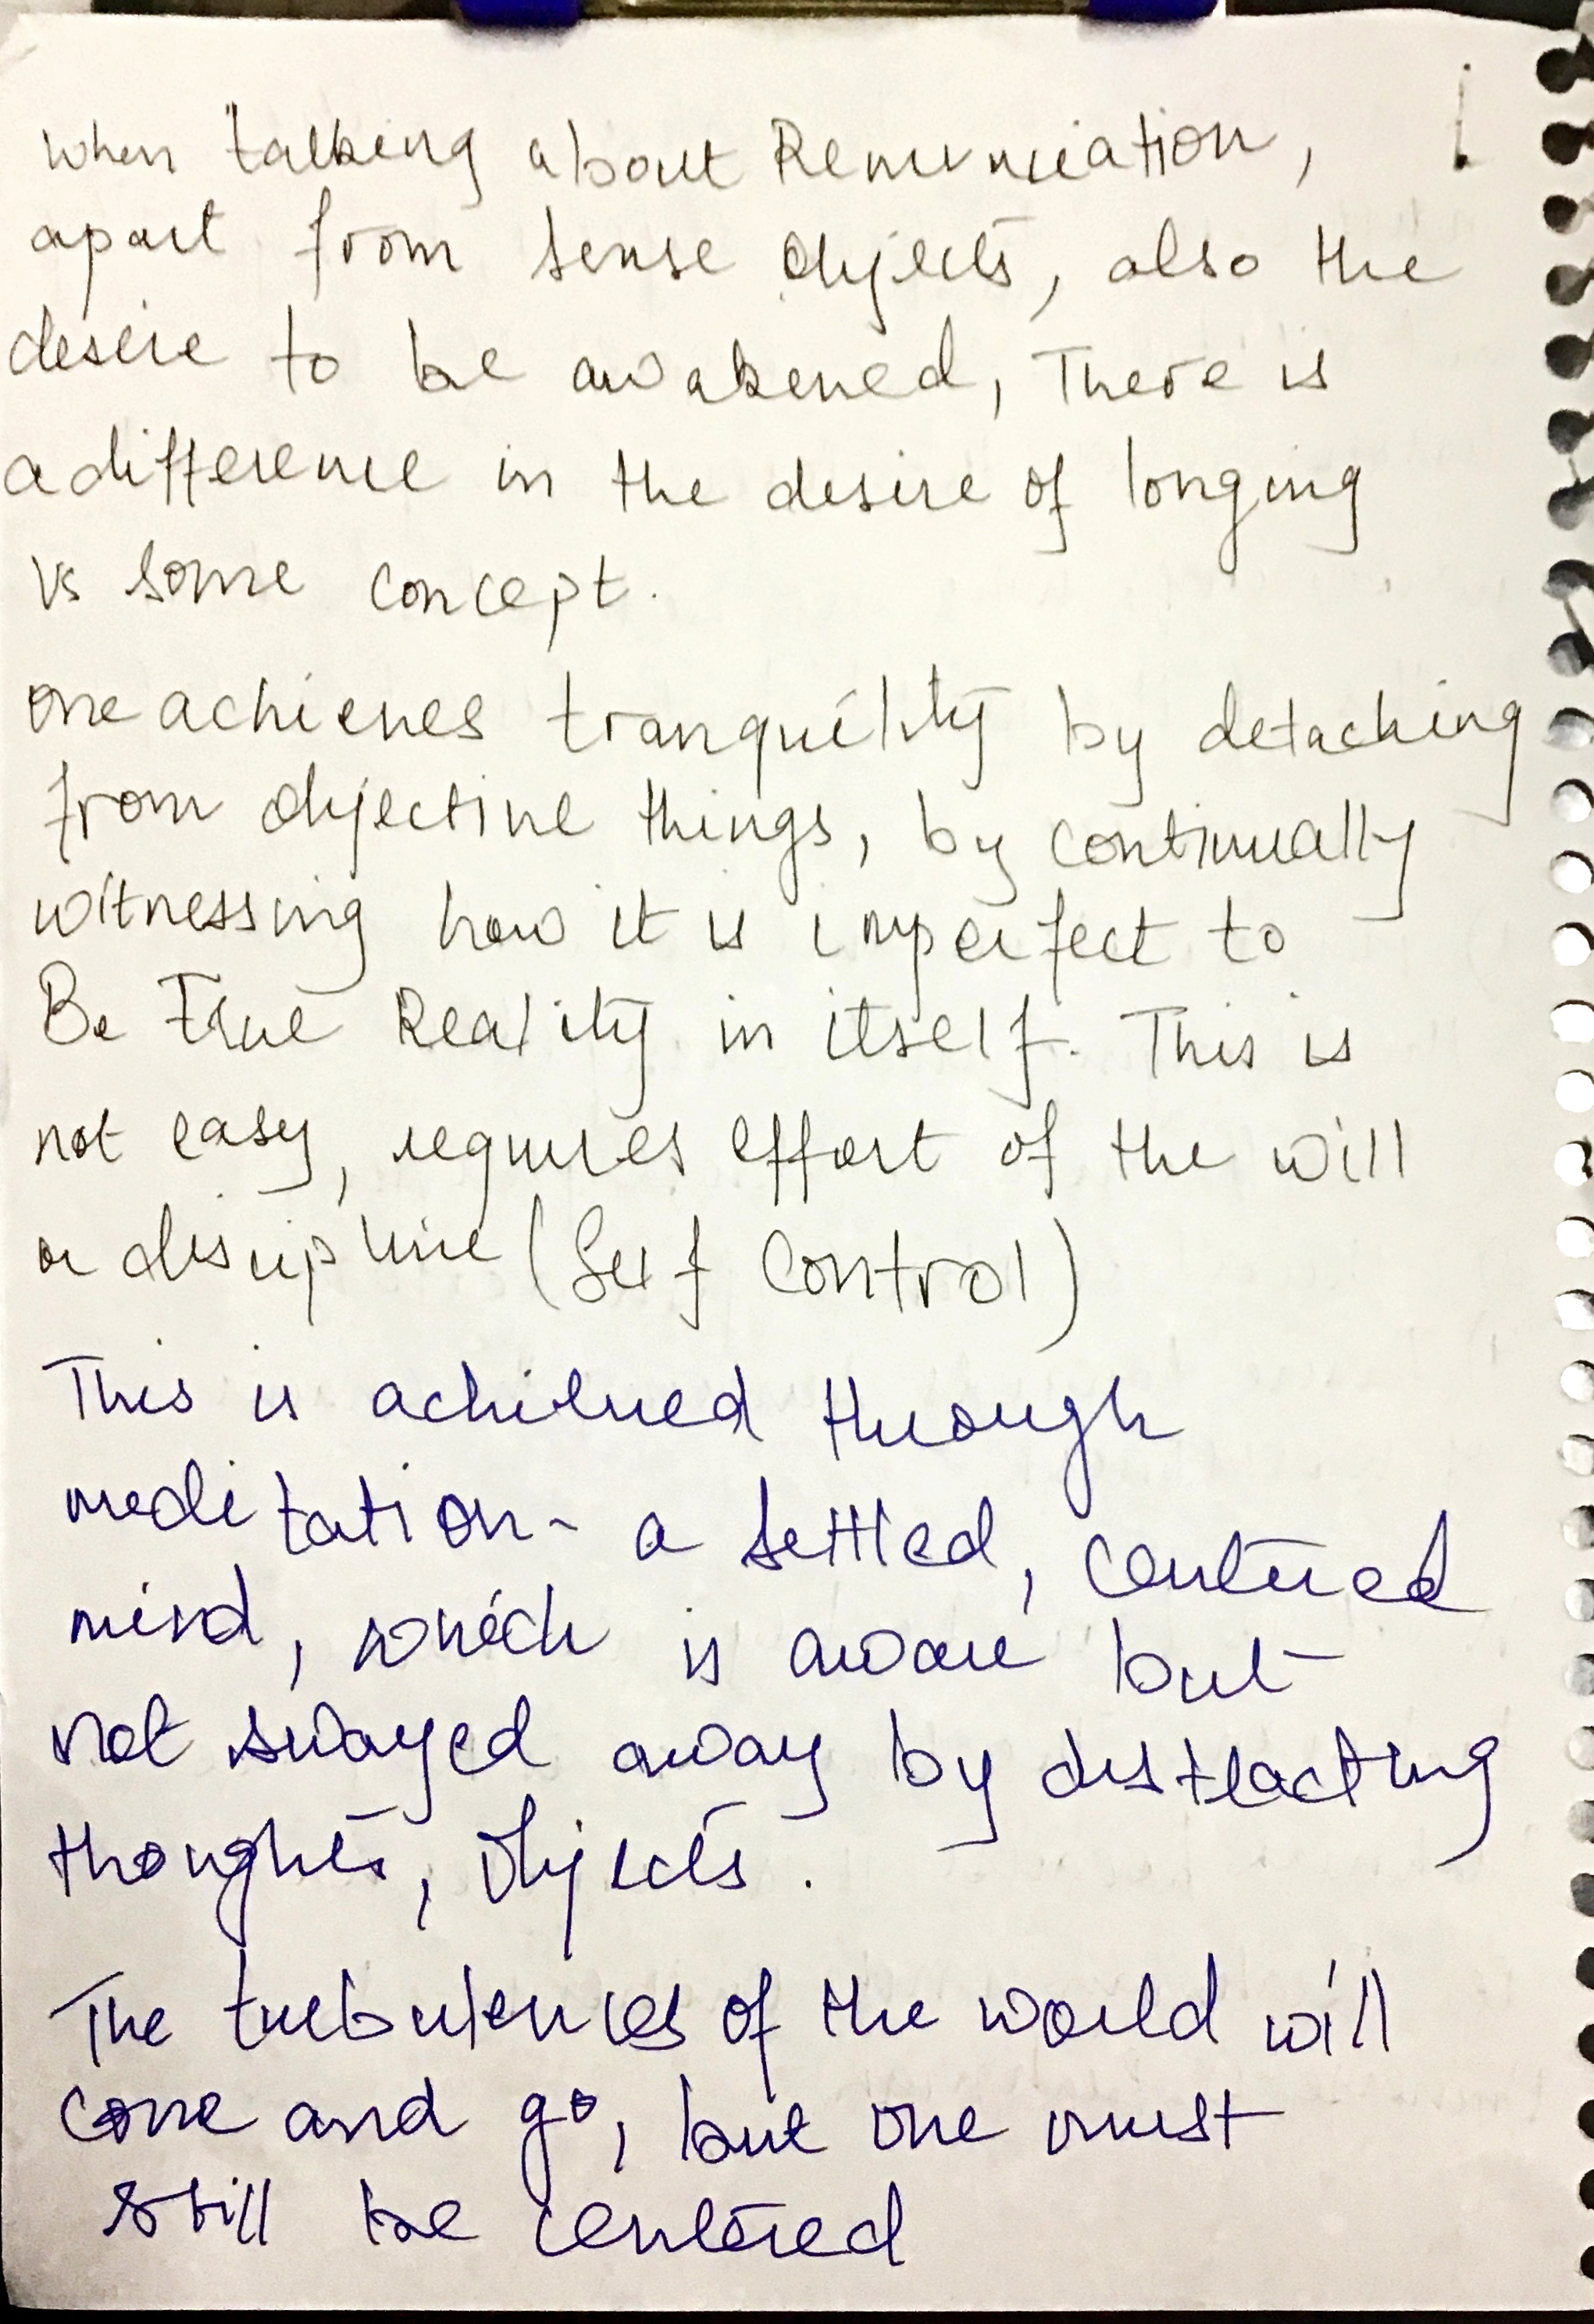 when talking about Renunciation,
apart from sense objects, also the
desire to be awakened, There is
a difference in the desire of longing
vs some concept.
one achieves tranquility by detaching
from objective things, by continually
witnessing how it is imperfect to
Be True Reality in itself. This is
not easy, requires effort of the will
or discipline (Self Control)
This is achieved through
meditation - a settled, centered
mind, which is aware but
not swayed away by distracting
thoughts, objects.
The turbulences of the world will
come and go, but one must
still be centered